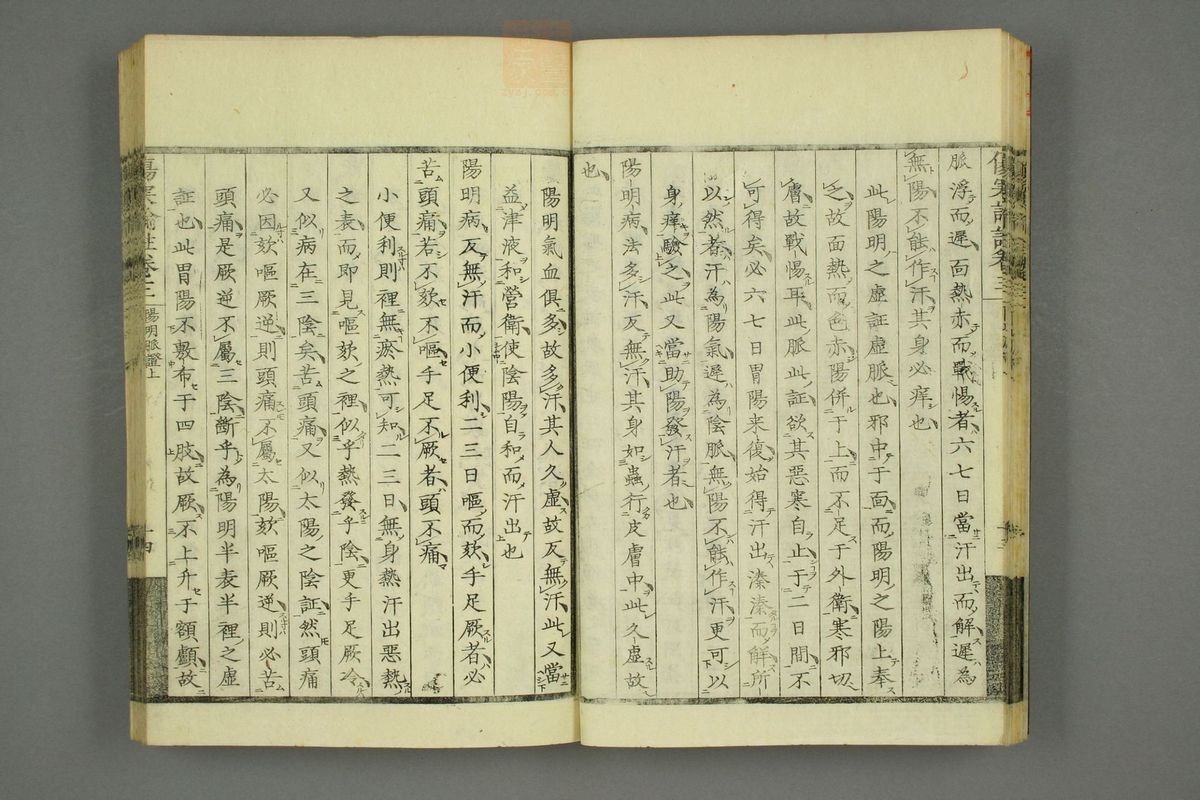 脈浮而遲面熱赤而戰惕者六七日當汗出而解遲為
無陽不能作汗其身必痒也
此陽明之虛証虛脈也邪中于面而陽明之陽上奉
之故面熱而色赤陽併于上而不足于外衛寒邪切
膚故戰惕耳此脈此証欲其惡寒自止于二日間不
可得矣必六七日胃陽来復始得汗出溱溱而解所
以然者汗為陽氣遲為陰脈無陽不能作汗更可以
身痒驗之此又當助陽發汗者也
陽明病法多汗反無汗其身如蟲行皮膚中此久虛故
也
陽明氣血俱多故多汗其人久虛故反無汗此又當
益津液和營衛使陰陽自和而汗出也
陽明病反無汗而小便利二三日嘔而欬手足厥者必
苦頭痛若不欬不嘔手足不厥者頭不痛
小便利則裡無瘀熱可知二三日無身熱汗出惡熱
之表而即見嘔欬之裡似乎熱發乎陰更手足厥冷
又似病在三陰矣苦頭痛又似太陽之陰証然頭痛
必因欬嘔厥逆則頭痛不屬太陽欬嘔厥逆則必苦
頭痛是厥逆不屬三陰斷乎為陽明半表半裡之虛
証也此胃陽不敷布于四肢故厥不上升于額顱故
傷寒論註卷三
陽明脈證上
十四